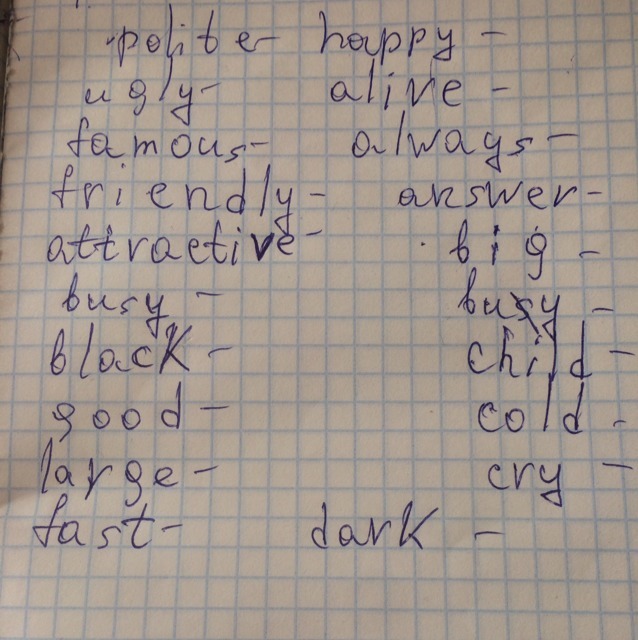 polite- happy -
ugly- alive -
famous- always -
friendly- answer-
attractive- big -
busy - buy -
black - child -
good - cold -
large - cry -
fast- dark -